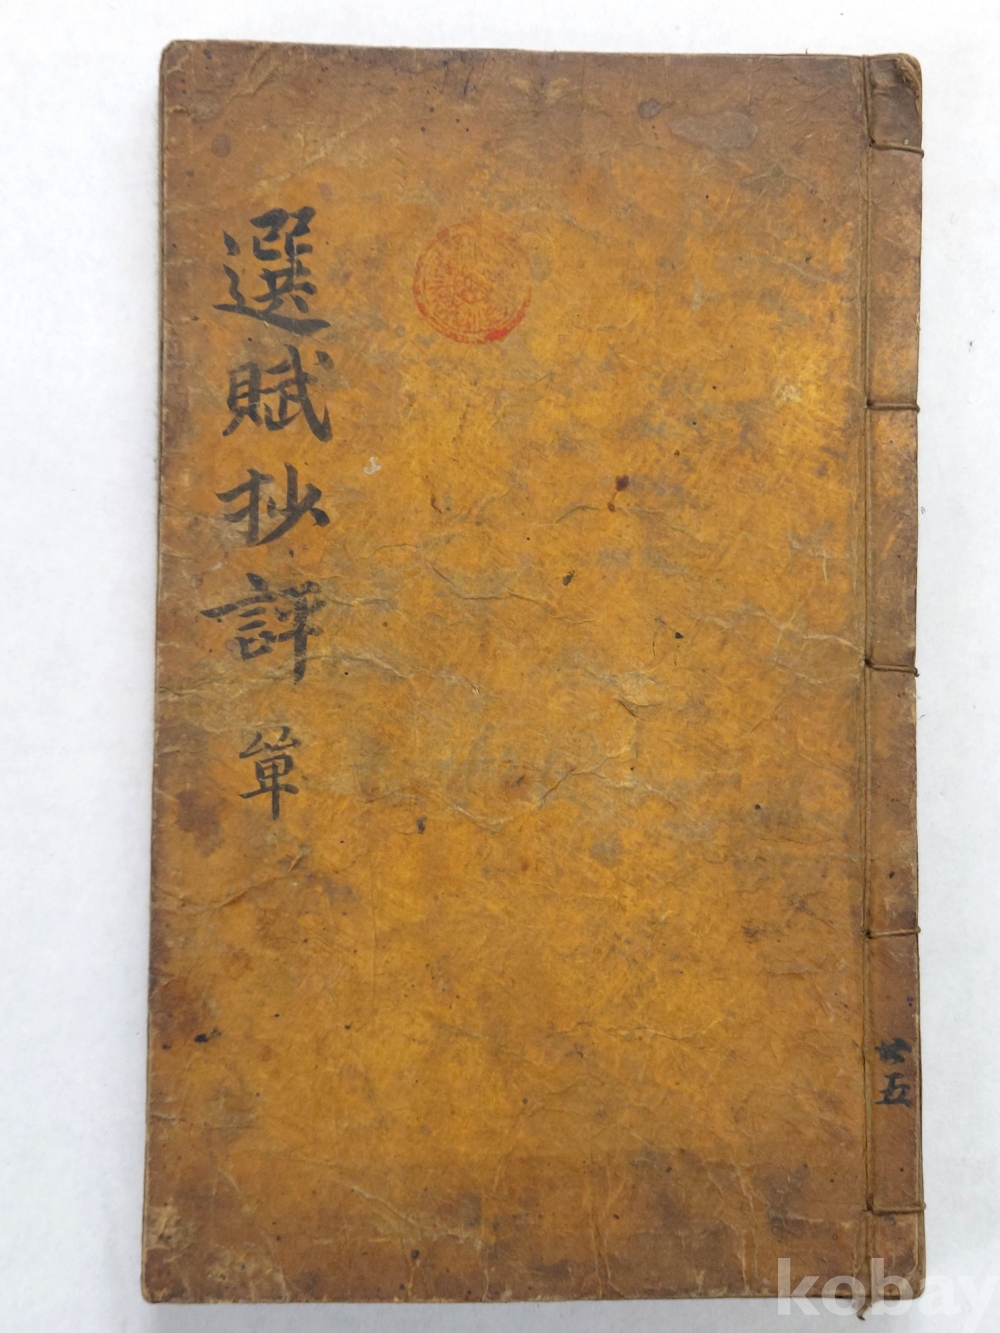 選賦抄評 單
廿五
kobay